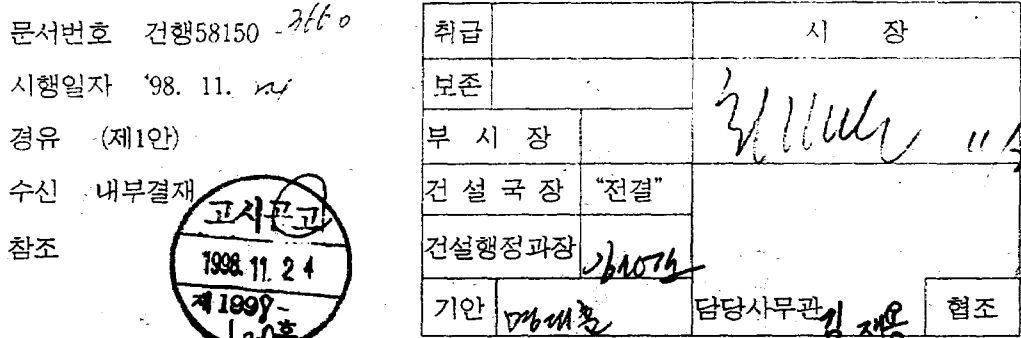 문서번호 건행58150 -
시행일자 '98. 11.
경유 (제1안)
수신 내부결재
참조
고시공고
1998. 11. 24
제1998-
취급
시 장
보존
부 시 장
건 설 국 장 "전결"
건설행정과장
기안
담당사무관 김
협조